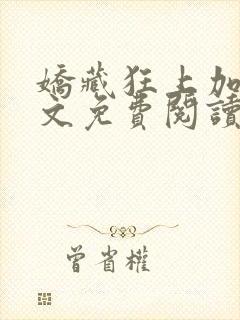 嬌藏狂上加
文免費閱讀
曾省權